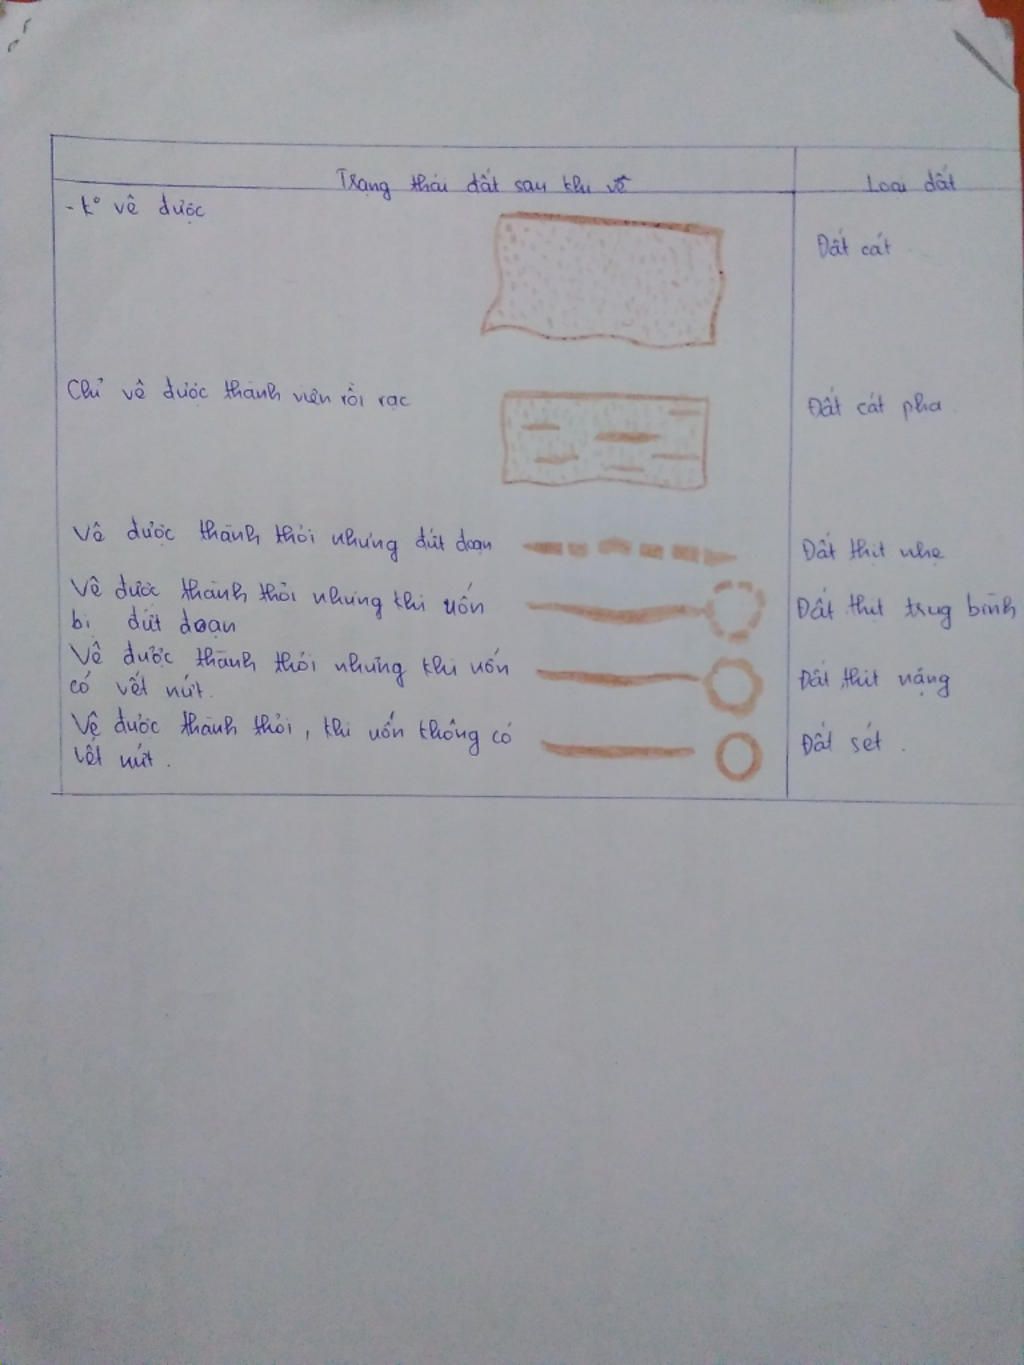 Trạng thái đất sau khi vê
Loại đất
- k° vê được
Đất cát
Chỉ vê được thành viên rời rạc
Đất cát pha
Vê được thành thỏi nhưng đứt đoạn
Đất thịt nhẹ
Vê được thành thỏi nhưng khi uốn
bị đứt đoạn
Đất thịt trug bình
Vê được thành thỏi nhưng khi uốn
có vết nứt.
Đất thịt nặng
Vê được thành thỏi, khi uốn không có
vết nứt.
Đất sét.